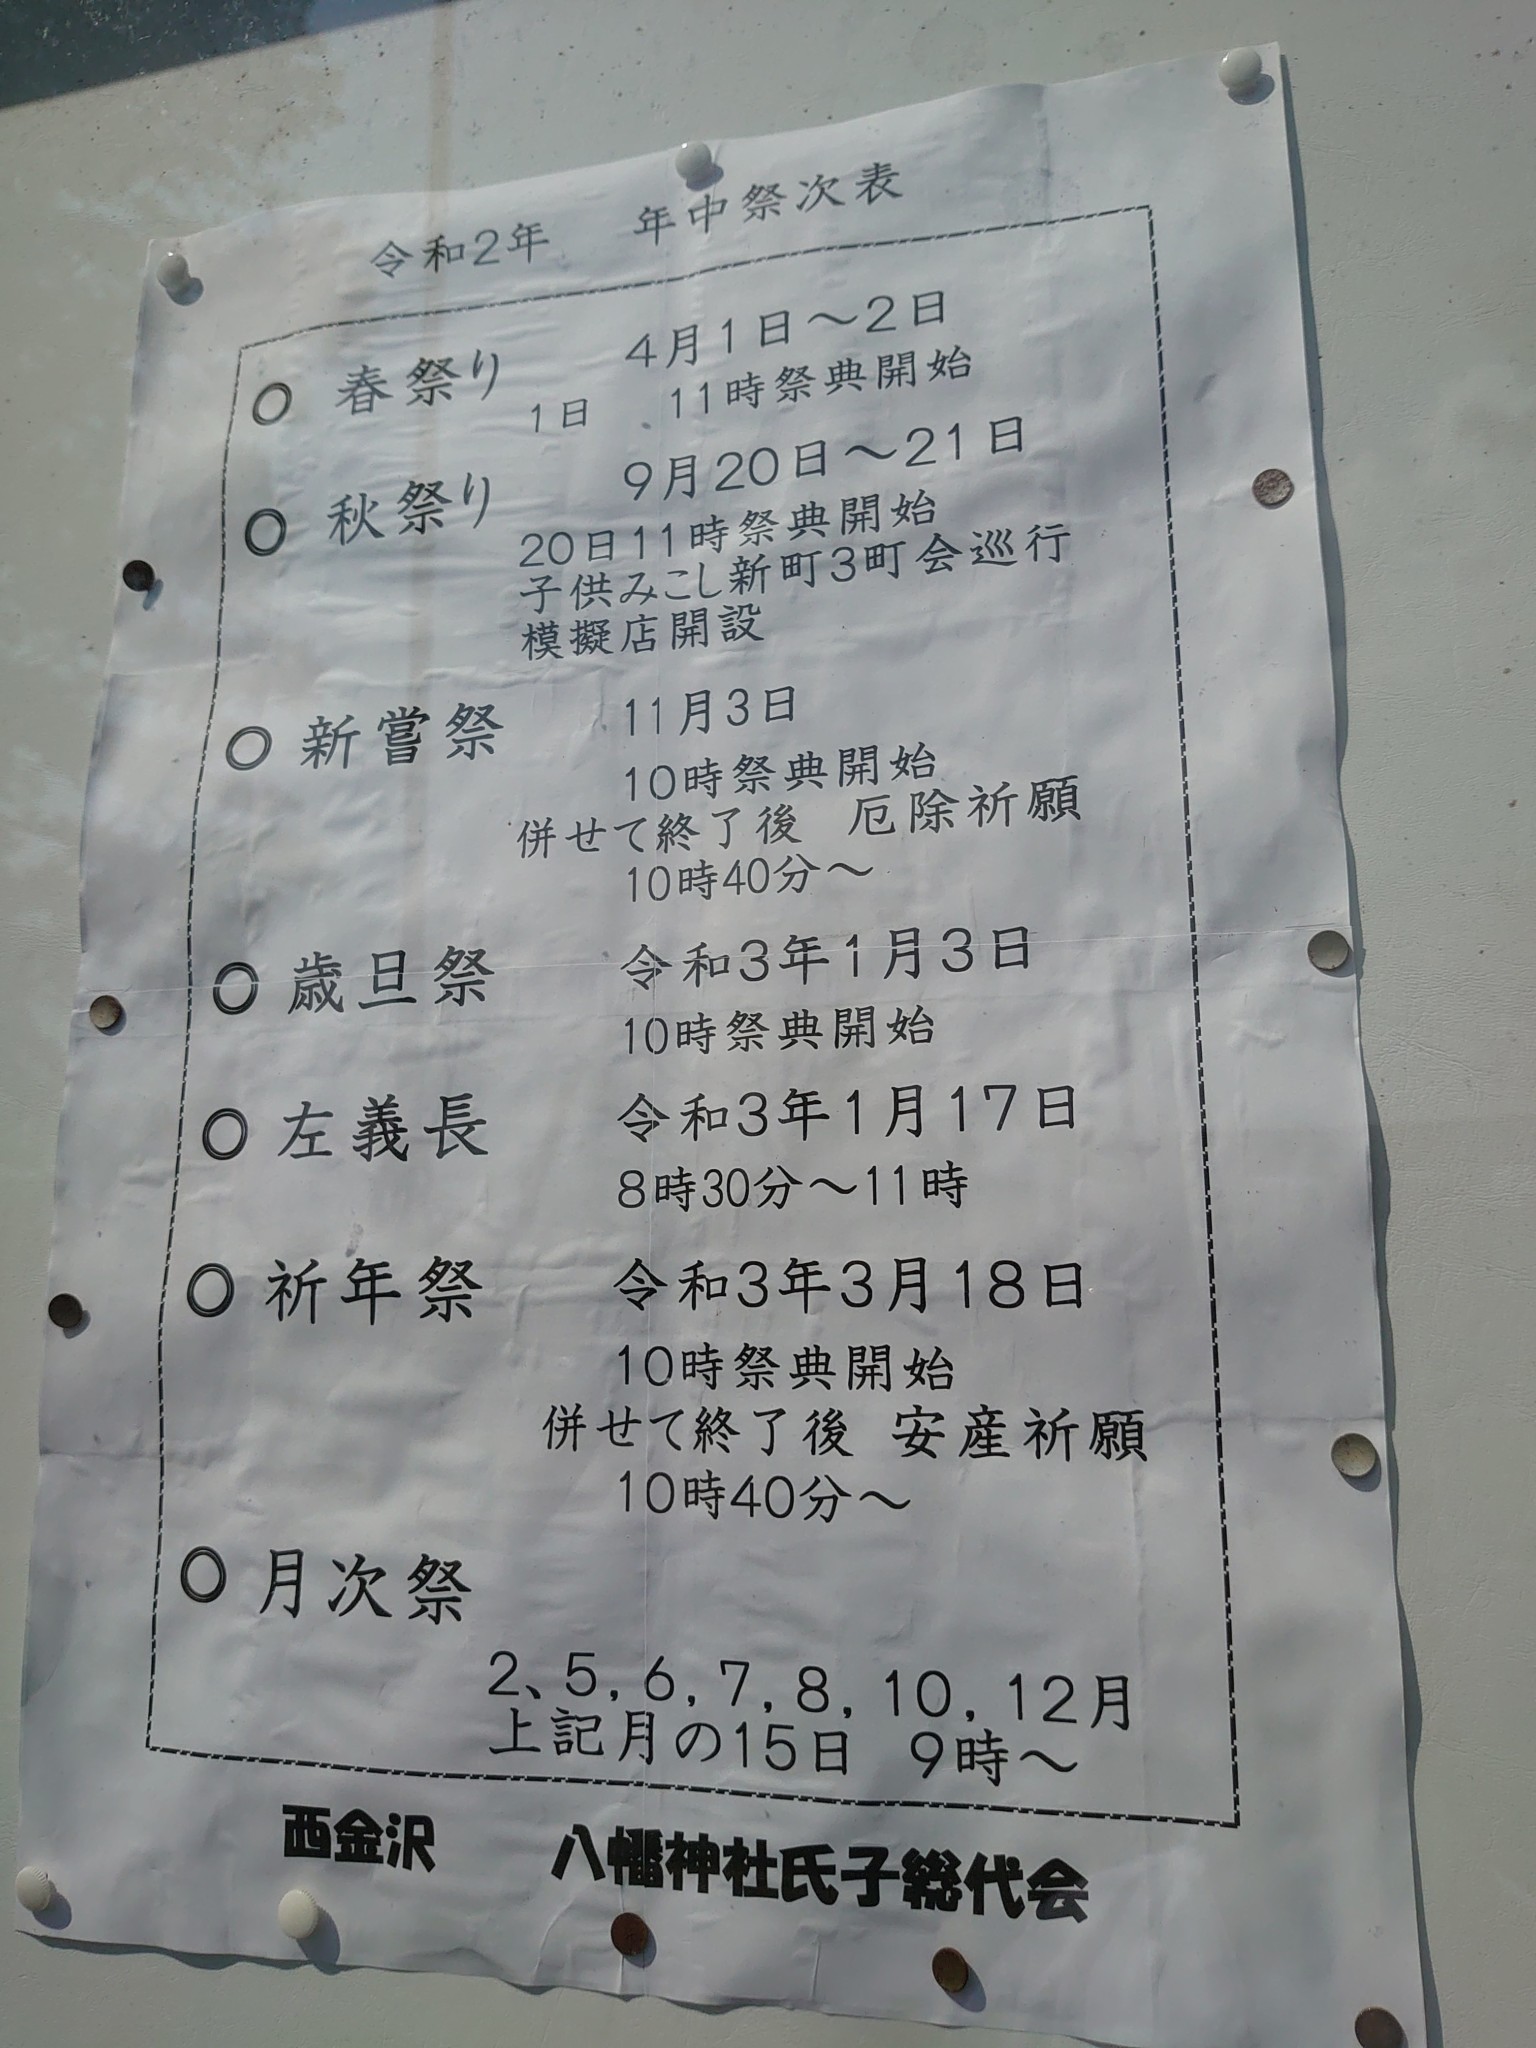 令和2年 年中祭次表
◎ 春祭り 4月1日～2日
1日 11時祭典開始
◎ 秋祭り 9月20日～21日
20日11時祭典開始
子供みこし新町3町会巡行
模擬店開設
◎ 新嘗祭 11月3日
10時祭典開始
併せて終了後 厄除祈願
10時40分～
◎ 歳旦祭 令和3年1月3日
10時祭典開始
◎ 左義長 令和3年1月17日
8時30分～11時
◎ 祈年祭 令和3年3月18日
10時祭典開始
併せて終了後 安産祈願
10時40分～
◎ 月次祭
2、5,6,7,8,10,12月
上記月の15日 9時～
西金沢 八幡神社氏子総代会